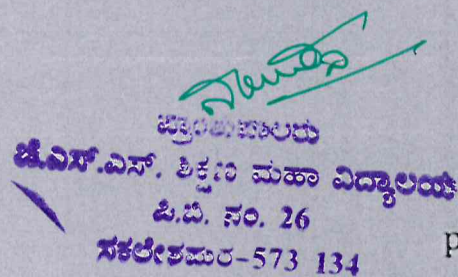 ಪ್ರಾಂಶುಪಾಲರು
ಜೆ.ಎಸ್.ಎಸ್. ಶಿಕ್ಷಣ ಮಹಾ ವಿದ್ಯಾಲಯ
ಪಿ.ಬಿ. ನಂ. 26
ಸಕಲೇಶಪುರ-573 134
p